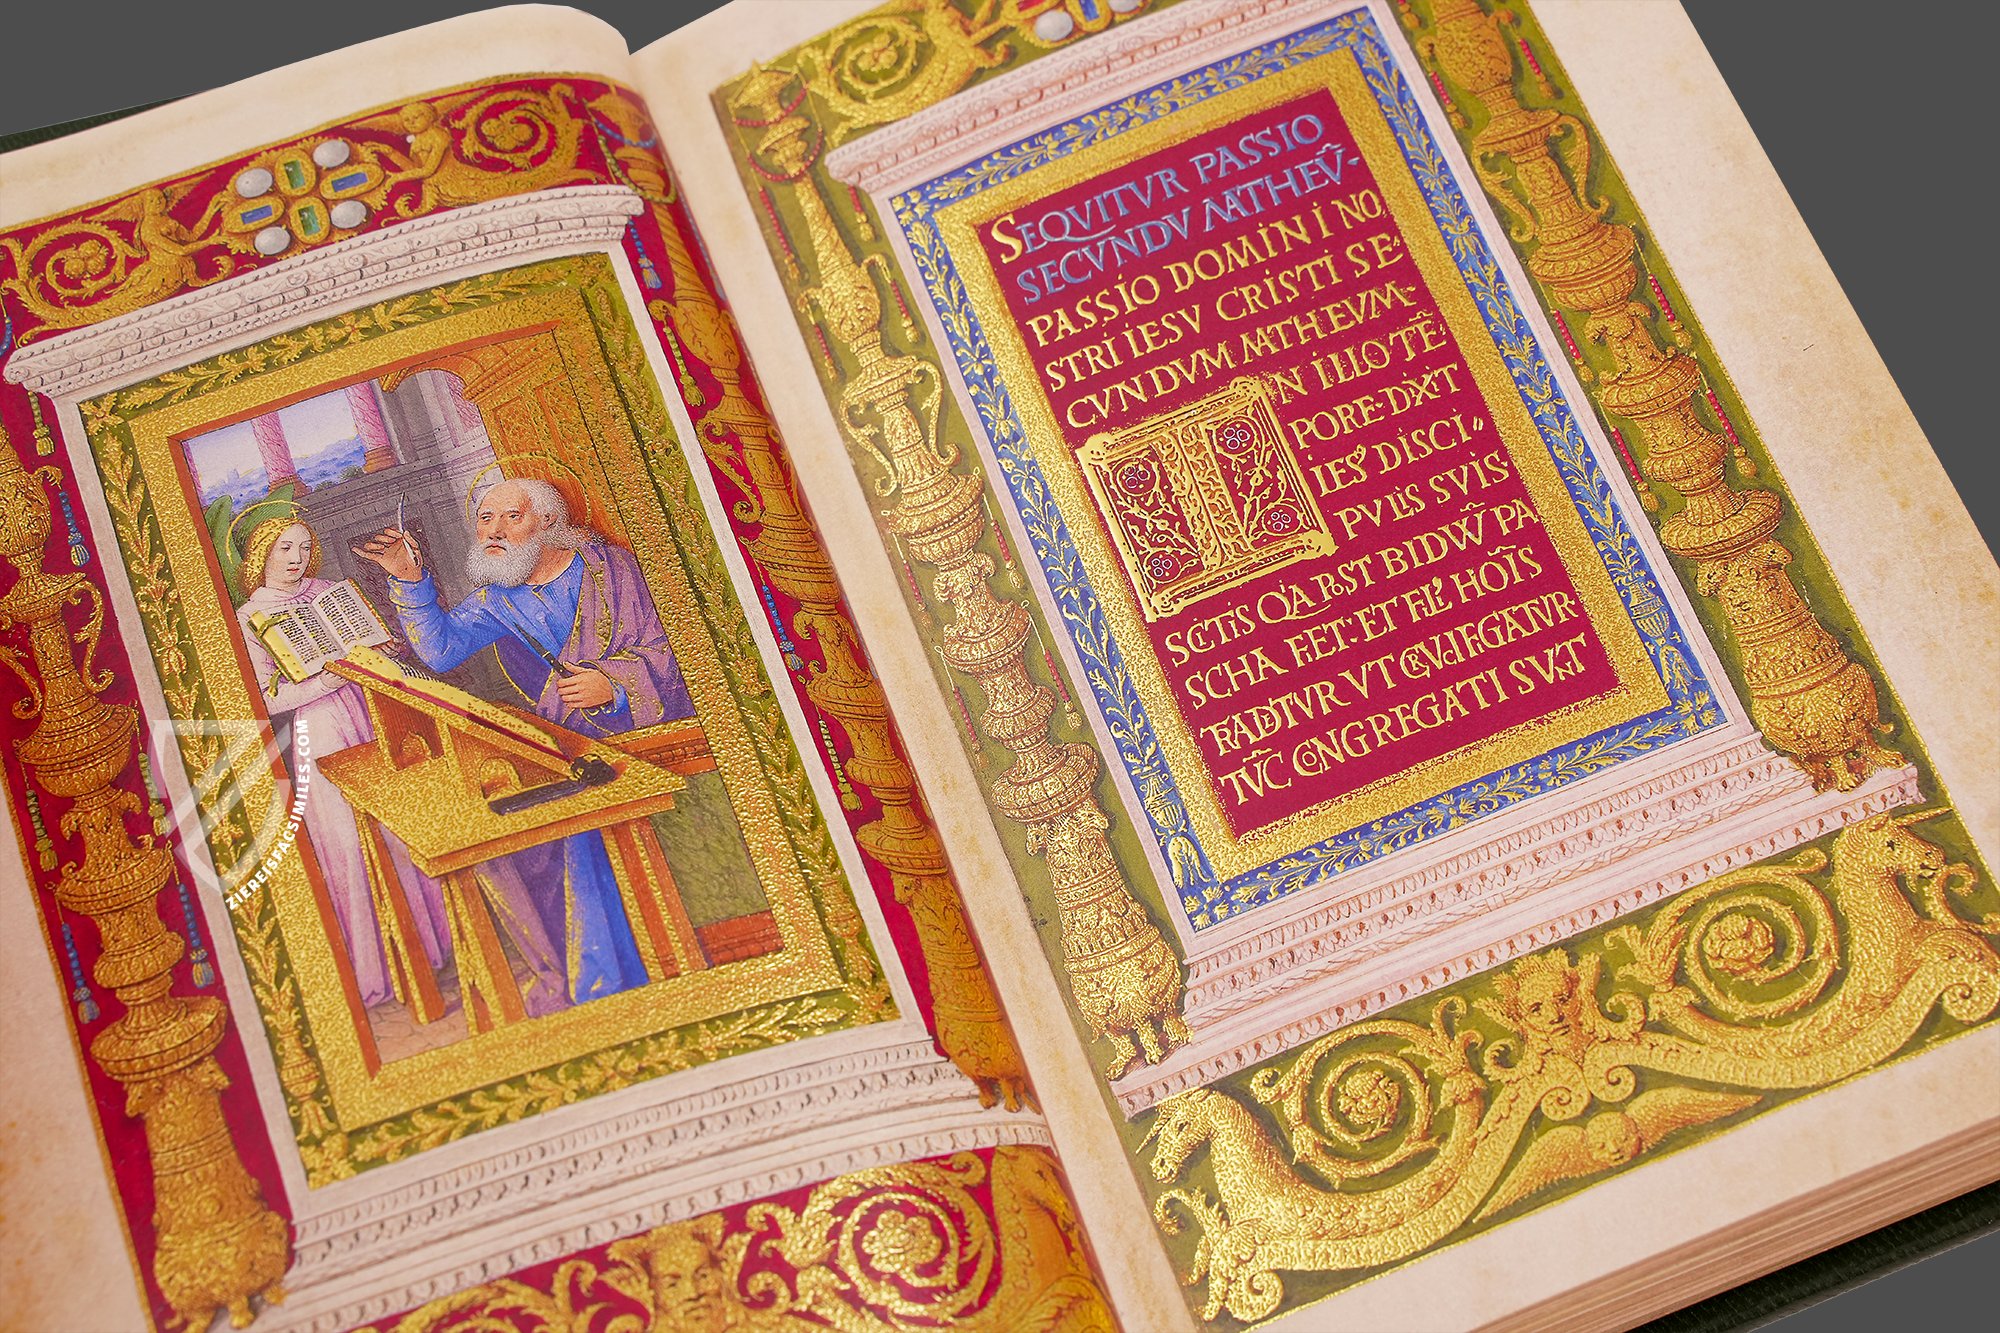 SEQVITVR PASSIO
SECVNDV MATHEV̄-
PASSIO DOMINI NO
STRI IESV CRISTI SE-
CVNDVM MATHEVM-
IN ILLO TĒ
PORE· DIXIT
IES' DISCI
PVLIS SVIS·
SCITIS QIA POST BIDWW̄ PA
SCHA FIET: ET FILI' HOĪS
TRADETVR VT CRVCIFIGATVR·
TVC̄ CONGREGATI SVNT
ZIEREISFACSIMILES.COM